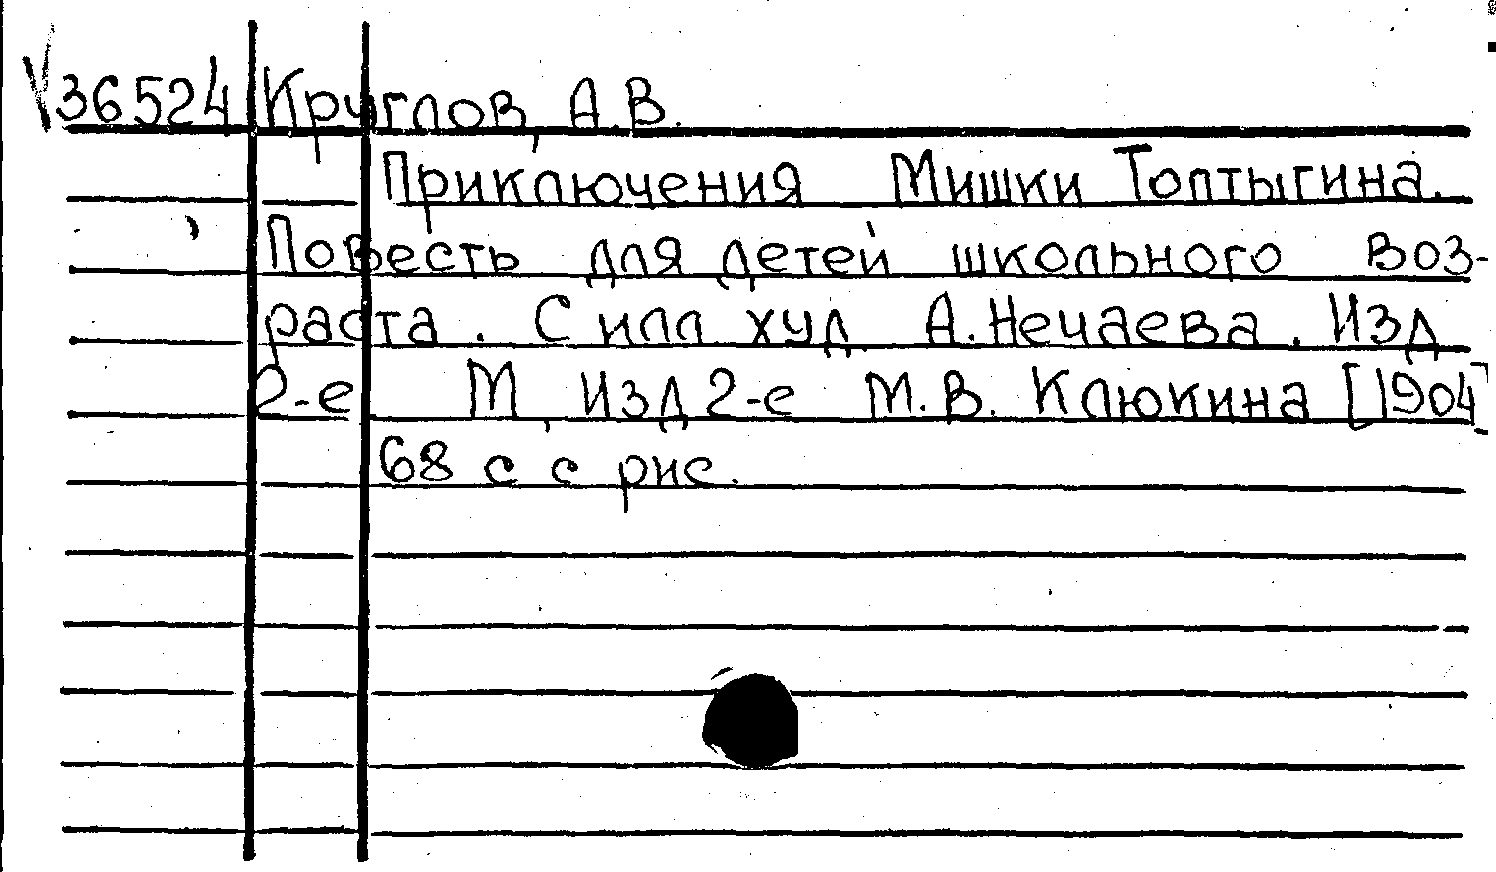 √36524 Круглов, А.В.
Приключения Мишки Топтыгина.
Повесть для детей школьного воз-
раста. С илл худ А.Нечаева. Изд
2-е М, Изд 2-е М.В. Клюкина [1904]
68 с с рис.